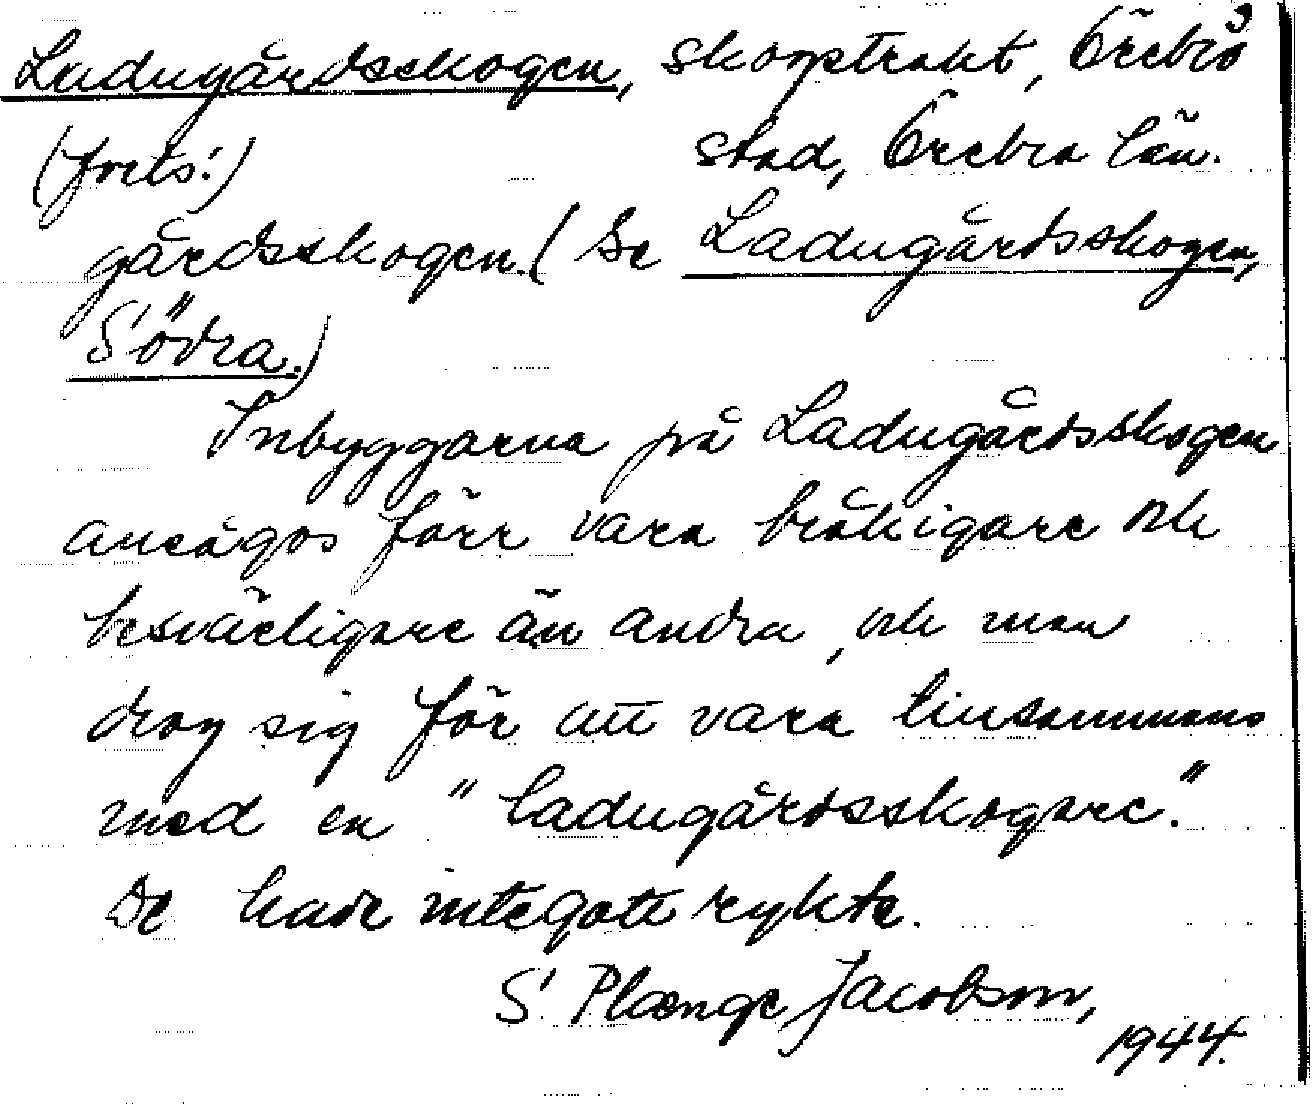 Ladugårdsskogen, skogstrakt, Örebro 3
(forts.) stad, Örebro län.
gårdsskogen. (Se Ladugårdsskogen,
Södra.)
Inbyggarna på Ladugårdsskogen
ansågos förr vara bråkigare och
besvärligare än andra, och man
drog sig för att vara tillsammans
med en "ladugårdsskogare."
De hade inte gott rykte.
S. Plænge Jacobson,
1944.